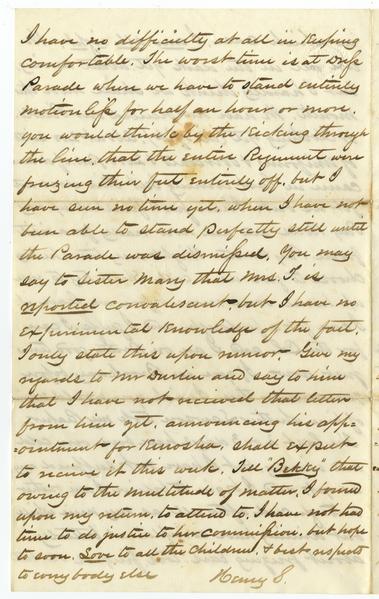 I have no difficulty at all in Keeping
comfortable. The worst time is at Dress
Parade when we have to stand entirely
motionless for half an hour or more.
you would think by the Kicking through
the line, that the entire Regiment were
freezing their feet entirely off, but I
have seen no time yet, when I have not
been able to stand Perfectly still until
the Parade was dismissed. You may
say to Sister Mary that Mrs. T. is
reported convalescent, but I have no
Experimental Knowledge of the fact.
I only state this upon rumor. Give my
regards to Mr Durlin and say to him
that I have not received that letter
from him yet, announcing his app=
ointment for Kenosha, shall Expect
to receive it this week. Tell "Bekky" that
owing to the multitude of matter, I found
upon my return, to attend to, I have not had
time to do justice to her commission, but hope
to soon. Love to all the Children, & best respects
to everybody else Henry S.